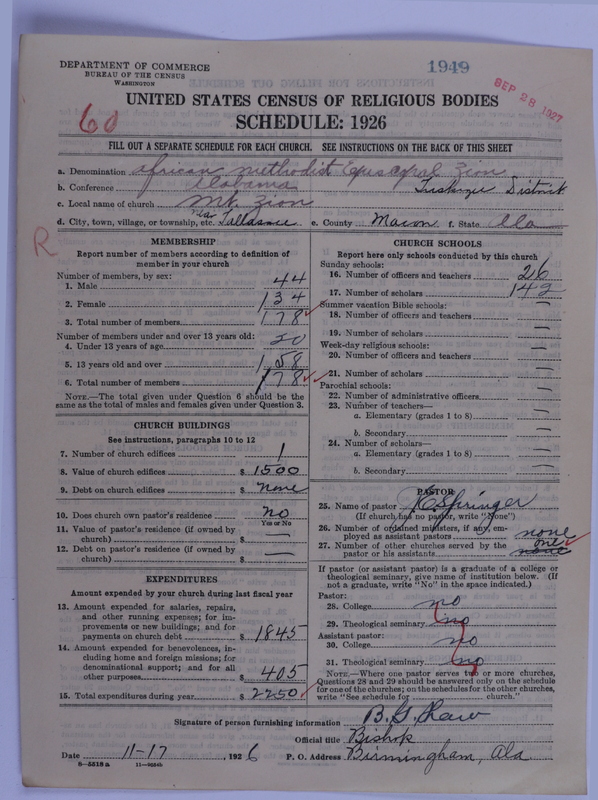 DEPARTMENT OF COMMERCE
BUREAU OF THE CENSUS
WASHINGTON
1949
SEP 28 1927
60
UNITED STATES CENSUS OF RELIGIOUS BODIES
SCHEDULE: 1926
FILL OUT A SEPARATE SCHEDULE FOR EACH CHURCH. SEE INSTRUCTIONS ON THE BACK OF THIS SHEET
a. Denomination African Methodist Episcopal Zion
b. Conference Alabama Tuskegee District
c. Local name of church Mt. Zion
d. City, town, village, or township, etc. near Tallassee e. County Macon f. State Ala
R
MEMBERSHIP
Report number of members according to definition of
member in your church
Number of members, by sex:
1. Male 44
2. Female 134
3. Total number of members 178
Number of members under and over 13 years old:
4. Under 13 years of age 20
5. 13 years old and over 158
6. Total number of members 178
NOTE.—The total given under Question 6 should be the
same as the total of males and females given under Question 3.
CHURCH BUILDINGS
See instructions, paragraphs 10 to 12
7. Number of church edifices 1
8. Value of church edifices $ 1500
9. Debt on church edifices $ none
10. Does church own pastor's residence no
Yes or No
11. Value of pastor's residence (if owned by
church) $ —
12. Debt on pastor's residence (if owned by
church) $
EXPENDITURES
Amount expended by your church during last fiscal year
13. Amount expended for salaries, repairs,
and other running expenses; for im-
provements or new buildings; and for
payments on church debt $ 1845
14. Amount expended for benevolences, in-
cluding home and foreign missions; for
denominational support; and for all
other purposes $ 405
15. Total expenditures during year $ 2250
CHURCH SCHOOLS
Report here only schools conducted by this church
Sunday schools:
16. Number of officers and teachers 26
17. Number of scholars 142
Summer vacation Bible schools:
18. Number of officers and teachers —
19. Number of scholars —
Week-day religious schools:
20. Number of officers and teachers —
21. Number of scholars —
Parochial schools:
22. Number of administrative officers —
23. Number of teachers—
a. Elementary (grades 1 to 8) —
b. Secondary —
24. Number of scholars—
a. Elementary (grades 1 to 8) —
b. Secondary —
PASTOR
25. Name of pastor Springer
(If church has no pastor, write "None")
26. Number of ordained ministers, if any, em-
ployed as assistant pastors none
27. Number of other churches served by the one
pastor or his assistants none
If pastor (or assistant pastor) is a graduate of a college or
theological seminary, give name of institution below. (If
not a graduate, write "No" in the space indicated.)
Pastor:
28. College no
29. Theological seminary no
Assistant pastor:
30. College no
31. Theological seminary no
NOTE.—Where one pastor serves two or more churches,
Questions 28 and 29 should be answered only on the schedule
for one of the churches; on the schedules for the other churches,
write "See schedule for church."
Signature of person furnishing information B. G. Shaw
Official title Bishop
Date 11-17, 1926 P. O. Address Birmingham, Ala
8—5518a 11—9024b